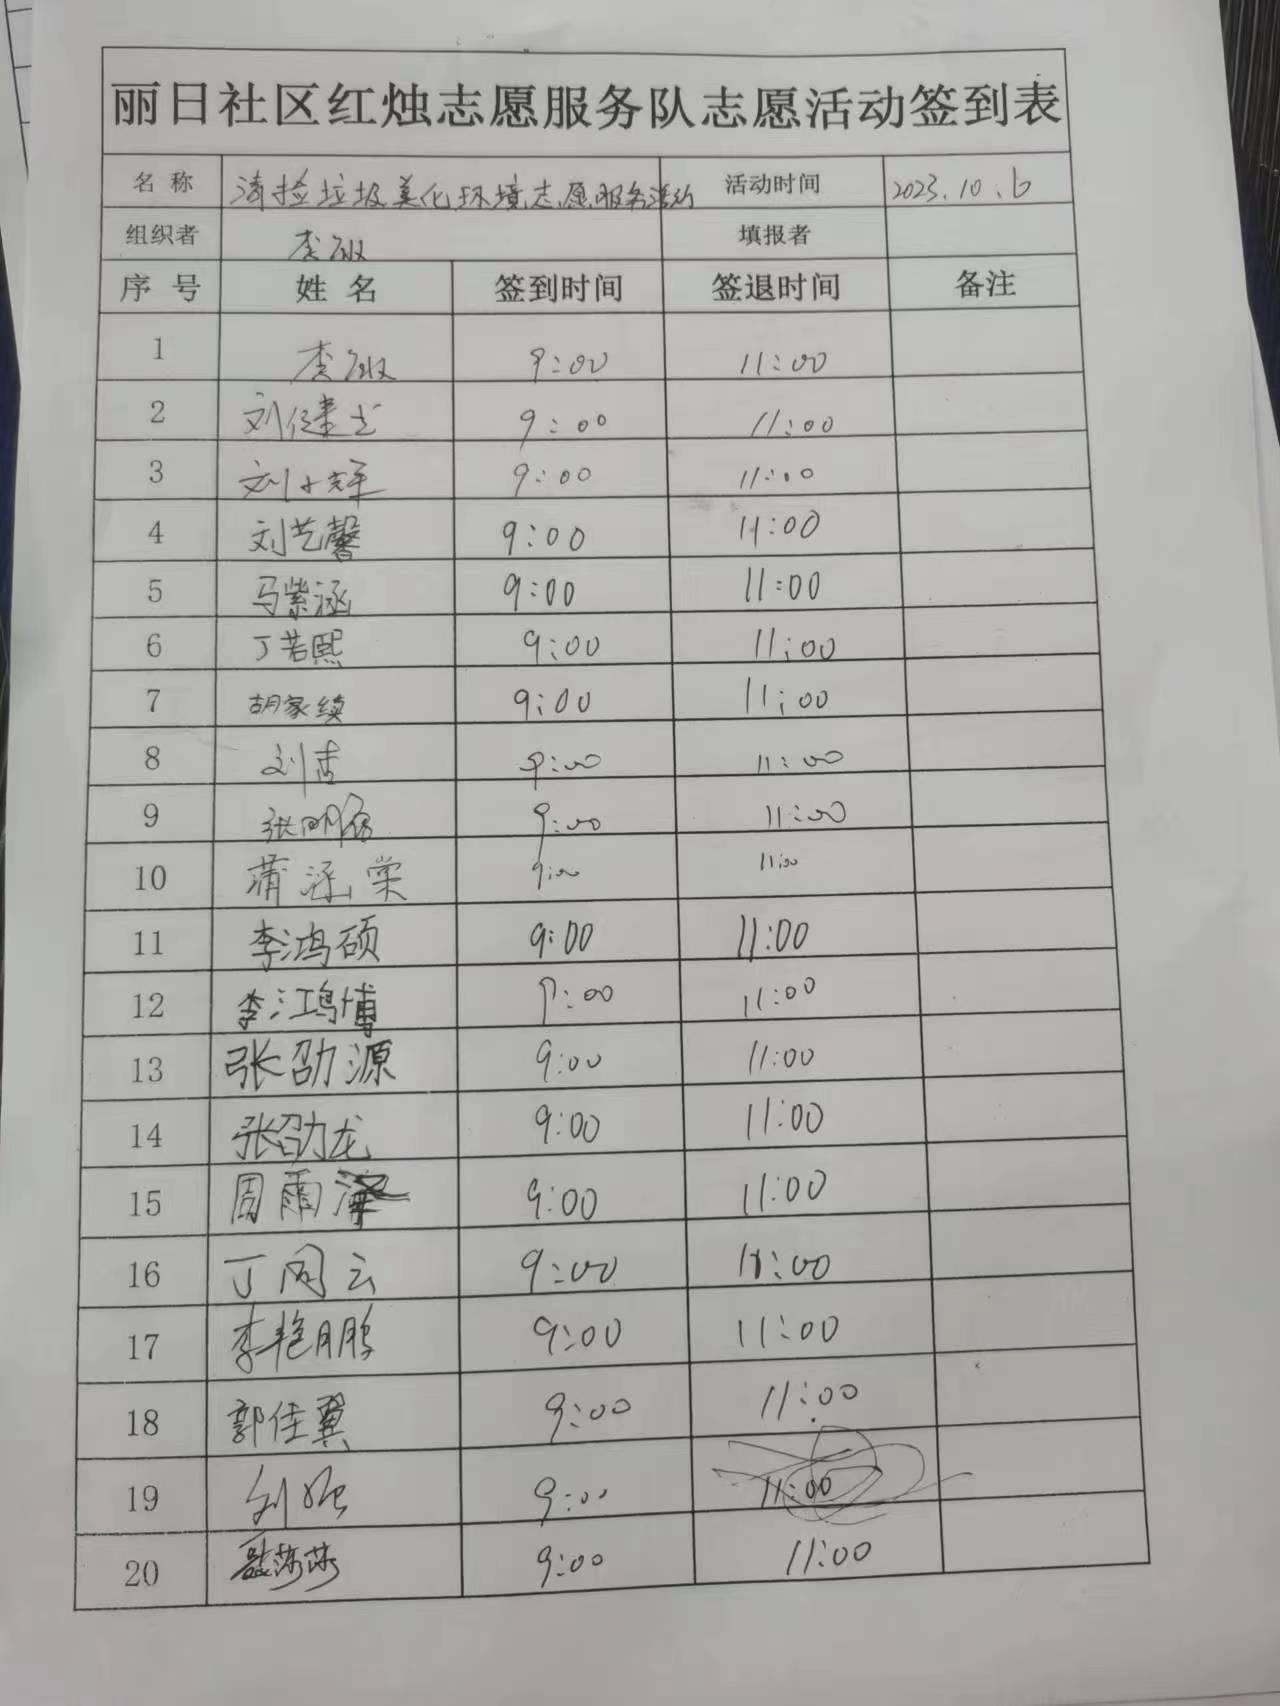 丽日社区红烛志愿服务队志愿活动签到表
名称 清捡垃圾美化环境志愿服务活动 活动时间 2023.10.6
组织者 李敏 填报者
序号 姓名 签到时间 签退时间 备注
1 李敏 9:00 11:00
2 刘健 9:00 11:00
3 刘小辉 9:00 11:00
4 刘艺馨 9:00 11:00
5 马紫涵 9:00 11:00
6 丁若熙 9:00 11:00
7 胡家续 9:00 11:00
8 刘杏 9:00 11:00
9 张明 9:00 11:00
10 蒲涵棠 9:00 11:00
11 李鸿硕 9:00 11:00
12 李鸿博 9:00 11:00
13 张劭源 9:00 11:00
14 张劭龙 9:00 11:00
15 周雨泽 9:00 11:00
16 丁周云 9:00 11:00
17 李艳鹏 9:00 11:00
18 郭佳翼 9:00 11:00
19 刘 9:00 11:00
20 莎莎 9:00 11:00